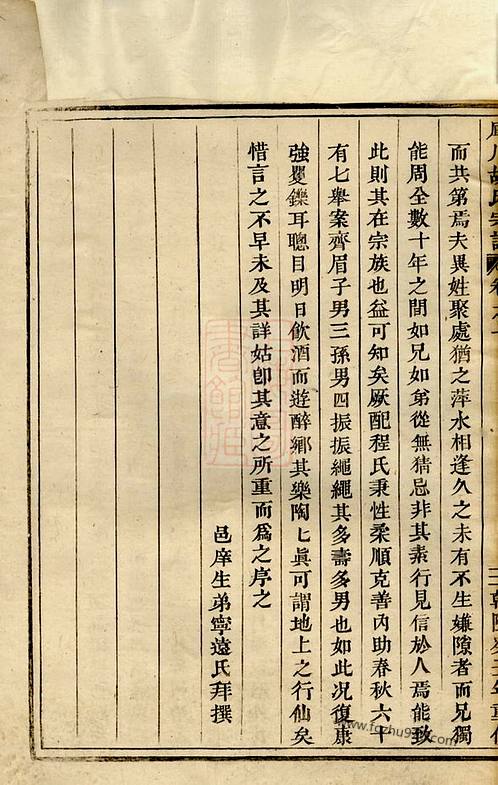 而共第焉夫異姓聚處猶之萍水相逢久之未有不生嫌隙者而兄獨
能周全數十年之間如兄如弟從無猜忌非其素行見信於人焉能致
此則其在宗族也益可知矣厥配程氏秉性柔順克善內助春秋六十
有七舉案齊眉子男三孫男四振振繩繩其多壽多男也如此况復康
強矍鑠耳聰目明日飲酒而遊醉鄉其樂陶匕眞可謂地上之行仙矣
惜言之不早未及其詳姑卽其意之所重而爲之序之
邑庠生弟寧遠氏拜撰